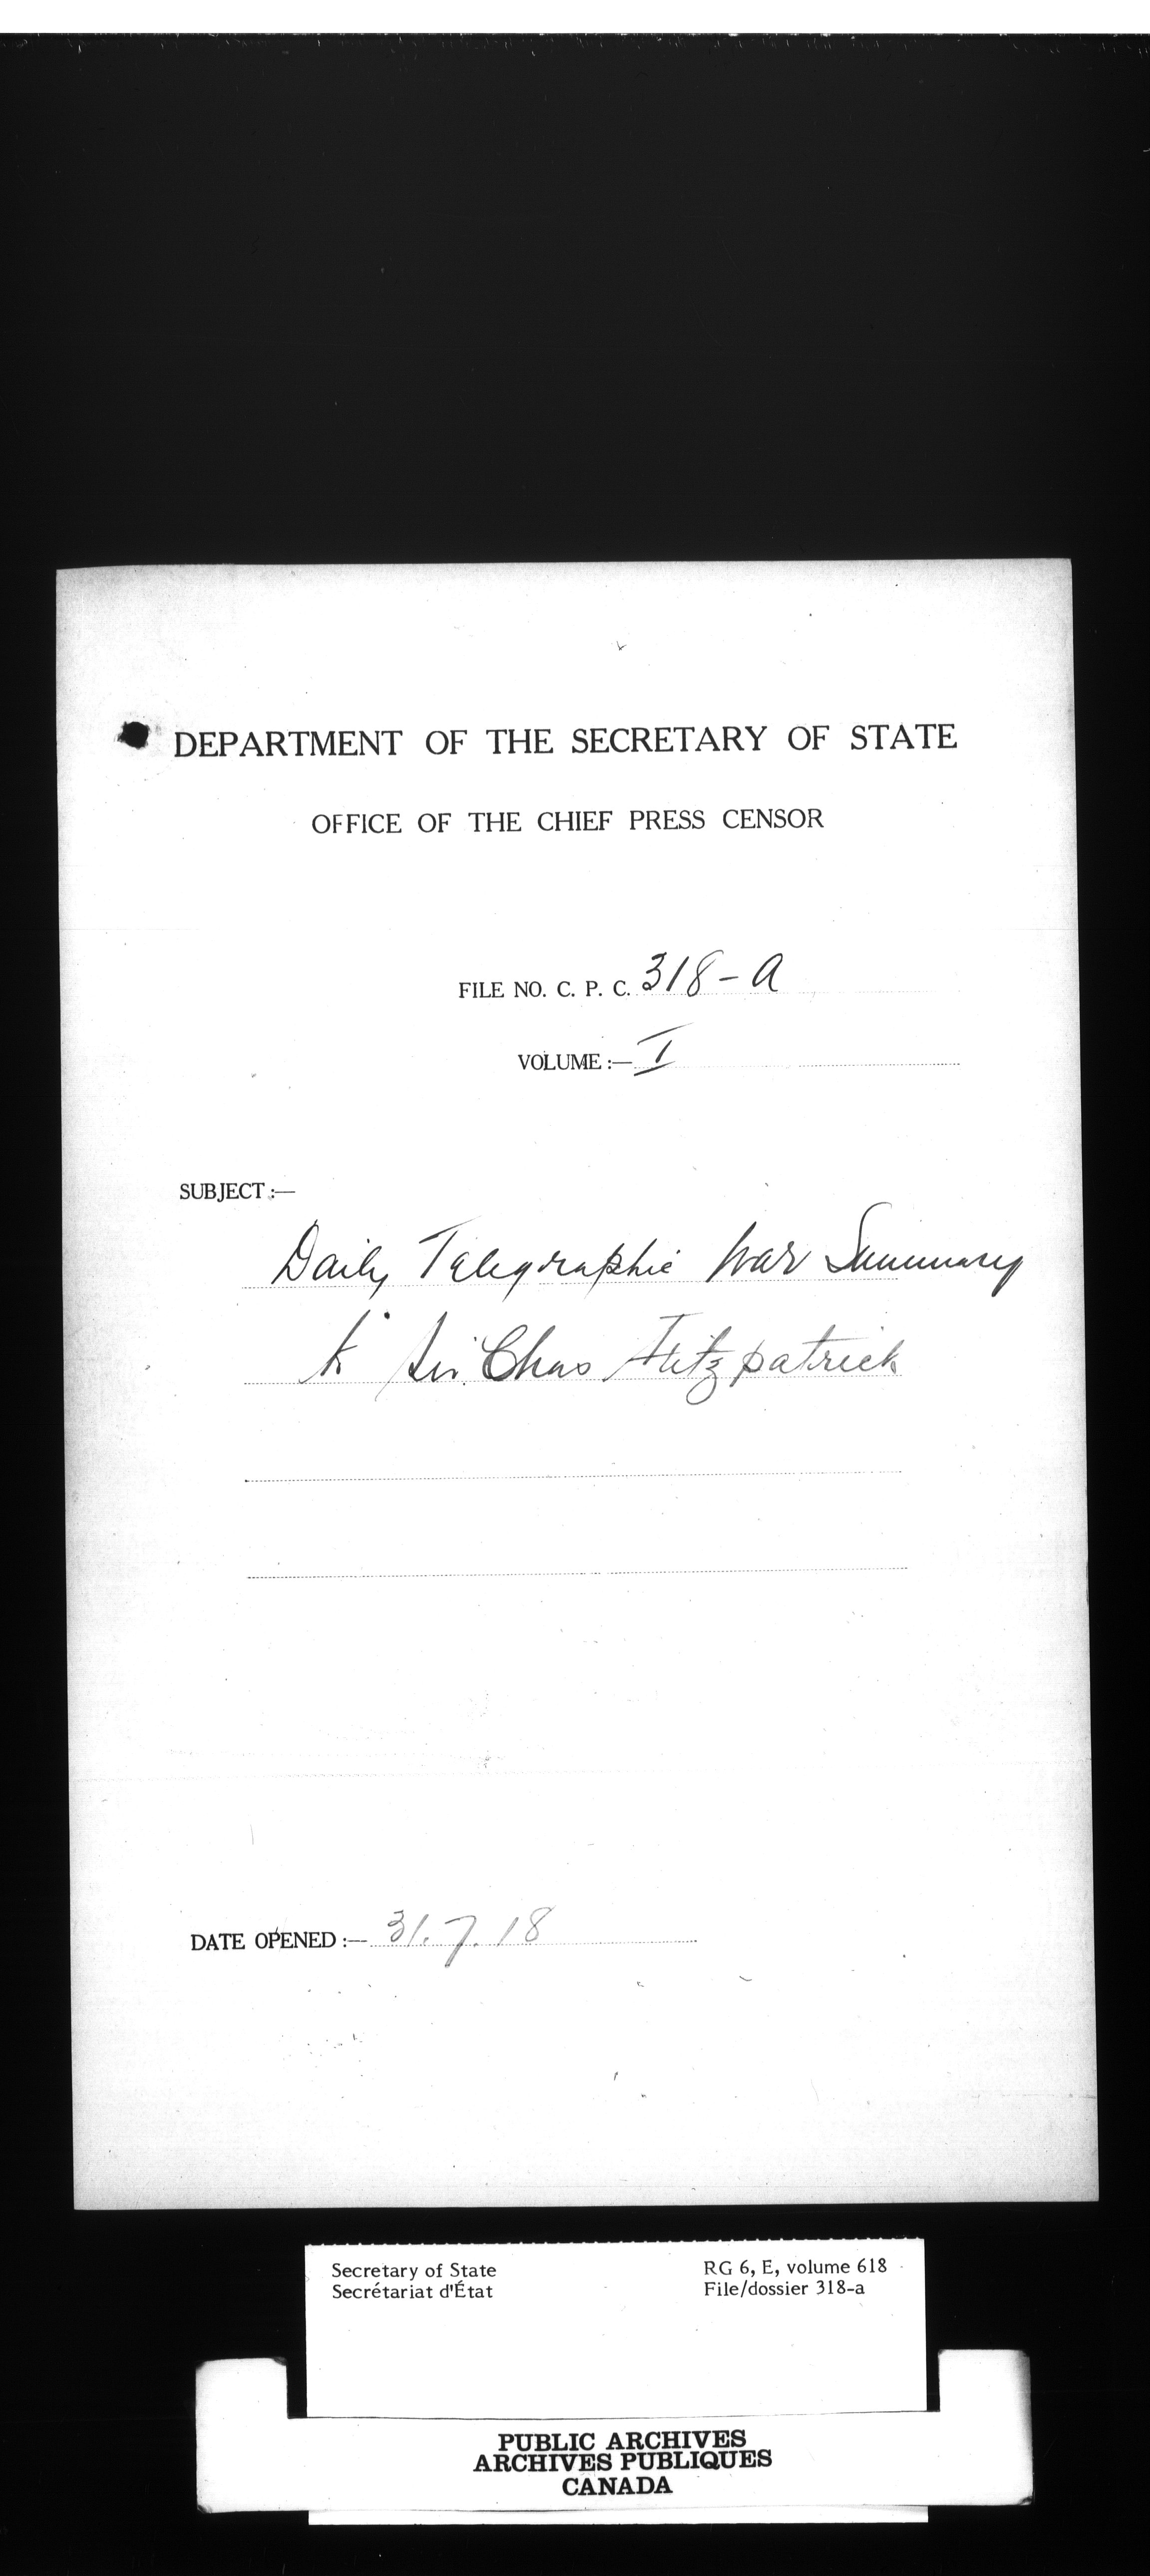 DEPARTMENT OF THE SECRETARY OF STATE
OFFICE OF THE CHIEF PRESS CENSOR
FILE NO. C. P. C. 318-a
VOLUME :— I
SUBJECT :—
Daily Telegraphic War Summary
to Sir Chas Fitzpatrick
DATE OPENED :— 31.7.18
Secretary of State RG 6, E, volume 618
Secrétariat d'État File/dossier 318-a
PUBLIC ARCHIVES
ARCHIVES PUBLIQUES
CANADA